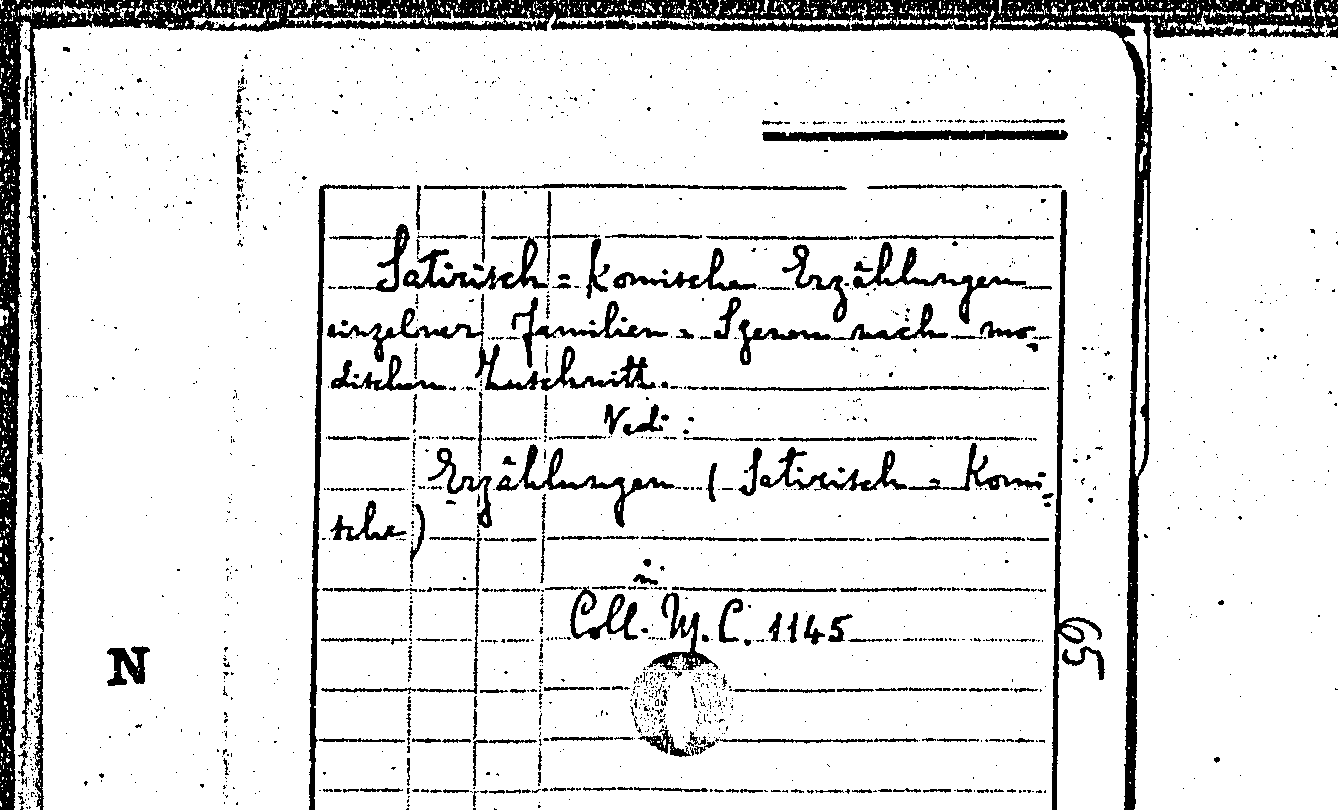 Satirisch = Komische Erzählungen
einzelner Familien = Szenen nach mo=
dischen Zuschnitt.
Vedi:
Erzählungen (Satirisch = Komi=
sche)
in
Coll. M. C. 1145
65
N